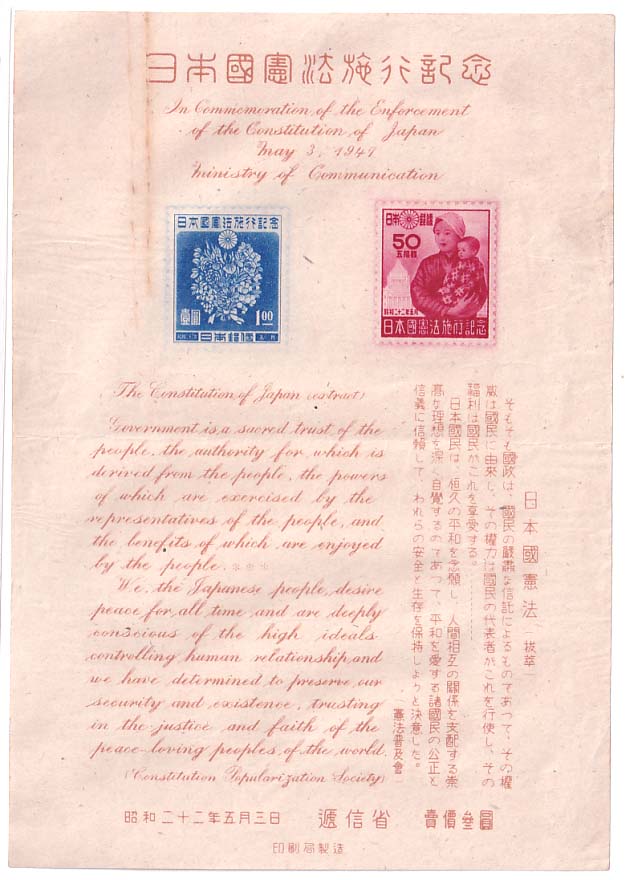 日本國憲法施行記念
In Commemoration of the Enforcement
of the Constitution of Japan
May 3, 1947
Ministry of Communication
日本國憲法施行記念
壹圓
1.00
日本郵便
日本郵便
50
五拾銭
昭和二十二年五月
日本國憲法施行記念
The Constitution of Japan (extract)
Government is a sacred trust of the
people, the authority for which is
derived from the people, the powers
of which are exercised by the
representatives of the people, and
the benefits of which are enjoyed
by the people. ※※※
We, the Japanese people, desire
peace for all time and are deeply
conscious of the high ideals
controlling human relationship, and
we have determined to preserve our
security and existence, trusting
in the justice and faith of the
peace-loving peoples of the world.
(Constitution Popularization Society)
日本國憲法(拔萃)
そもそも國政は、國民の嚴肅な信託によるものであつて、その權
威は國民に由來し、その權力は國民の代表者がこれを行使し、その
福利は國民がこれを享受する。…………
日本國民は、恒久の平和を念願し、人間相互の關係を支配する崇
高な理想を深く自覺するのであつて、平和を愛する諸國民の公正と
信義に信頼して、われらの安全と生存を保持しようと決意した。
(憲法普及會)
昭和二十二年五月三日 遞信省 賣價參圓
印刷局製造